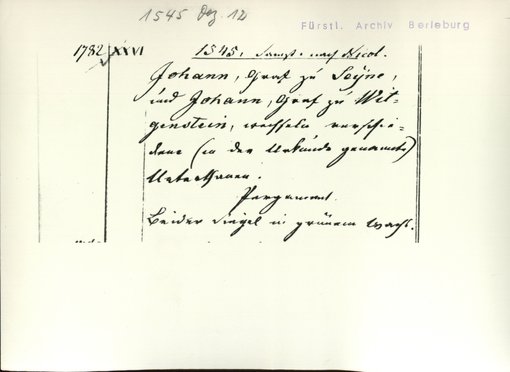 1545 Dez. 12
Fürstl. Archiv Berleburg
1782 XXVI 1545, Sampt. nach Nicol.
Johann, Graf zu Seyne,
und Johann, Graf zu Wit-
genstein, wechseln verschie-
dene (in der Urkunde genannte)
Unterthanen.
Pergament.
Beider Siegel in grünem Wachs.